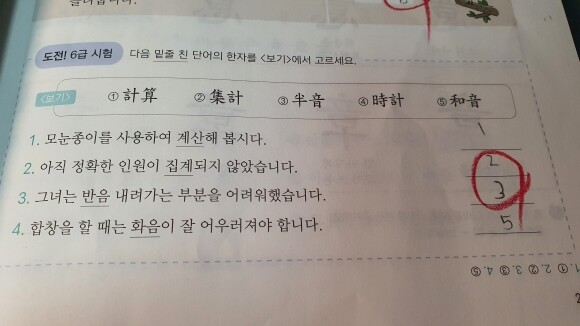 도전! 6급 시험 다음 밑줄 친 단어의 한자를 <보기>에서 고르세요.
<보기> ① 計算 ② 集計 ③ 半音 ④ 時計 ⑤ 和音
1. 모눈종이를 사용하여 계산해 봅시다. 1
2. 아직 정확한 인원이 집계되지 않았습니다. 2
3. 그녀는 반음 내려가는 부분을 어려워했습니다. 3
4. 합창을 할 때는 화음이 잘 어우러져야 합니다. 5
1. ① 2. ② 3. ③ 4. ⑤